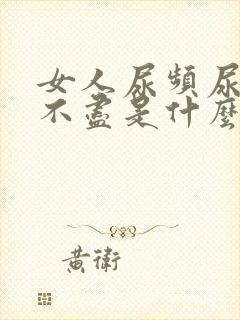 女人尿頻尿
不盡是什麼
黃衛